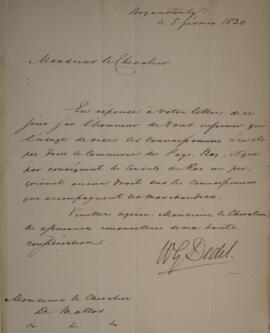 le 5 février 1830
Monsieur le Chevalier
En réponse à votre lettre de ce
jour j'ai l'honneur de vous informer que
l'usage de viser les connoissemens n'existe
pas dans le Commerce des Pays-Bas, et que
par conséquent les Consuls du Roi ne per-
çoivent aucun droit sur les connoissemens
qui accompagnent les marchandises.
Veuillez agréer, Monsieur le Chevalier
les assurances renouvellées de ma haute
considération
WG Dedel.
Monsieur le Chevalier
De Mattos